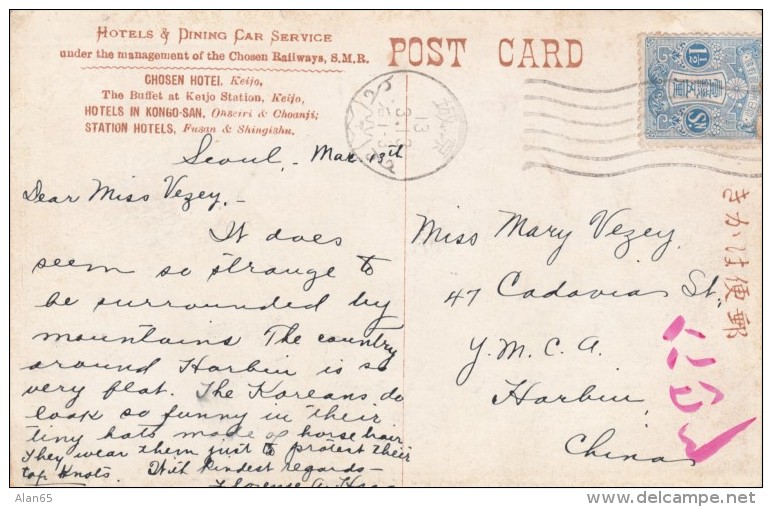 HOTELS & DINING CAR SERVICE
under the management of the Chosen Railways, S.M.R.
CHOSEN HOTEL Keijo,
The Buffet at Keijo Station, Keijo,
HOTELS IN KONGO-SAN, Onseiri & Choanji;
STATION HOTELS, Fusan & Shingishu.
POST CARD
Seoul, Mar 13th
Dear Miss Vezey,-
It does
seem so strange to
be surrounded by
mountains The country
around Harbin is so
very flat. The Koreans do
look so funny in their
tiny hats made of horse hair
They wear them just to protest their
top knots. With kindest regards-
Florence A.
Miss Mary Vezey.
47 Cadavia St.,
Y. M. C. A.
Harbin,
China
きかは便郵
京城
13
1½
Alan65
www.delcampe.net